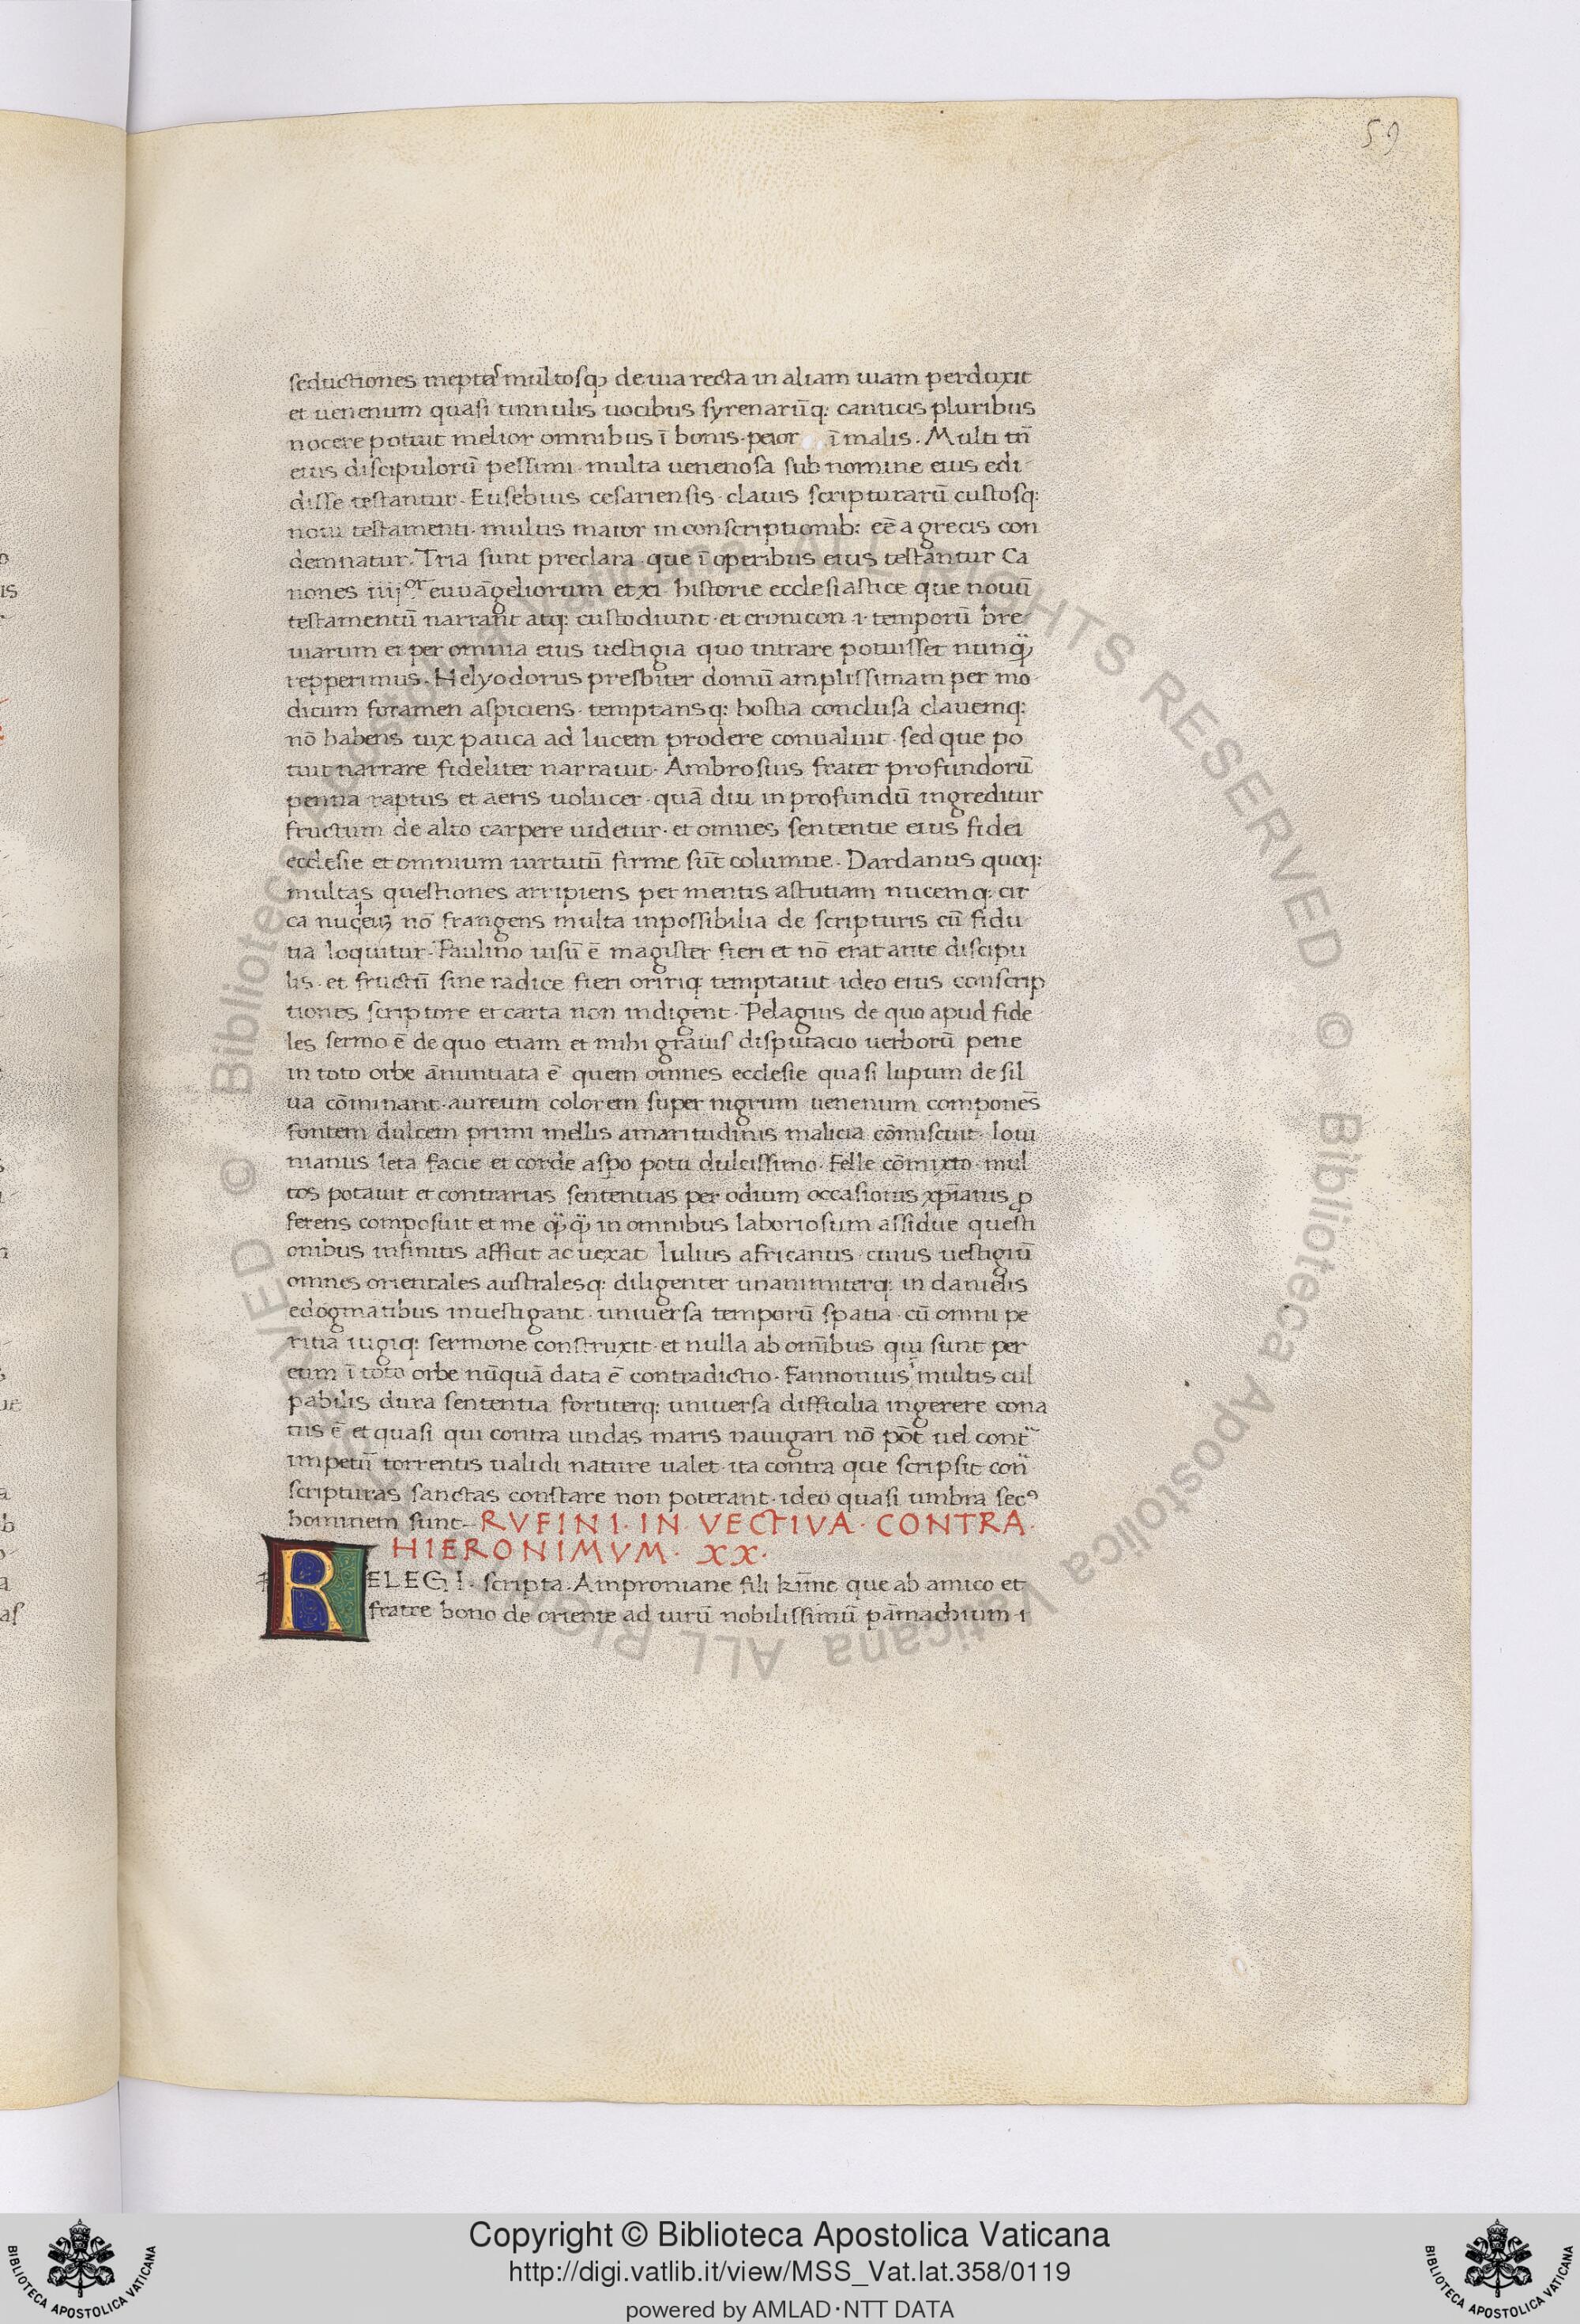 59
seductiones ineptas multosq; de uia recta in aliam uiam perduxit
et uenenum quasi tinnulis uocibus syrenarūq: canticis pluribus
nocere potuit melior omnibus ī bonis · peior ī malis . Multi tn̄
eius discipulorū pessimi · multa uenenosa sub nomine eius edi
disse testantur · Eusebius cesariensis · clauis scripturarū custosq:
noui testamenti · multis maior in conscriptionib: eē a grecis con
demnatur · Tria sunt preclara · que ī operibus eius testantur Ca
nones iiijor euuāgeliorum et xi · historie ecclesiastice que nouū
testamentū narrant atq: custodiunt · et cronicon · i · temporū bre
uiarum et per omnia eius uestigia quo intrare potuisset nunq̄
repperimus · Helyodorus presbiter domū amplissimam per mo
dicum foramen aspiciens · temptansq: hostia conclusa clauemq:
nō habens uix pauca ad lucem prodere conualuit · sed que po
tuit narrare fideliter narrauit · Ambrosius frater profundorū
penna raptus et aeris uolucer · quā diu in profundū ingreditur
fructum de alto carpere uidetur · et omnes sententie eius fidei
ecclesie et omnium uirtutū firme sūt columne · Dardanus quoq:
multas questiones arripiens per mentis astutiam nucemq: cir
ca nō frangens multa inpossibilia de scripturis cū fidu
tia loquitur · Paulino uisū ē magister fieri et nō erat ante discipu
lis · et fructū sine radice fieri oririq: temptauit · ideo eius conscrip
tiones scriptore et carta non indigent · Pelagius de quo apud fide
les sermo ē de quo etiam et mihi grauis disputacio uerborū pene
in toto orbe ānuntiata ē quem omnes ecclesie quasi lupum de sil
ua cōminant · aureum colorem super nigrum uenenum componēs
fontem dulcem primi mellis amaritudinis malicia cōmiscuit · Ioui
nianus leta facie et corde aspo potu dulcissimo · Felle cōmixto · mul
tos potauit et contrarias sententias per odium occasionis xp̄ianis p
ferens composuit et me q̄q̄ in omnibus laboriosum assidue questi
onibus infinitis afficit ac uexat Iulius africanus · cuius uestigiū
omnes orientales australesq: diligenter unanimiterq: in danielis
edogmatibus inuestigant · uniuersa temporū spatia · cū omni pe
ritia iugiq: sermone construxit · et nulla ab omībus qui sunt per
eum ī toto orbe nūquā data ē contradictio · Fannonius multis cul
pabilis dura sententia fortiterq: uniuersa difficilia ingerere cona
tus ē et quasi qui contra undas maris nauigari nō pōt uel cont̄
impetū torrentis ualidi nature ualet · ita contra que scripsit con̄
scripturas sanctas constare non poterant · ideo quasi umbra sec9
hominem sunt - RVFINI · IN · VECTIVA · CONTRA ·
HIERONIMVM · XX ·
RELEGI · scripta · Amproniane fili k̄īme que ab amico et
fratre bono de oriente ad uirū nobilissimū pāmachium · i
Copyright © Biblioteca Apostolica Vaticana
http://digi.vatlib.it/view/MSS_Vat.lat.358/0119
powered by AMLAD·NTT DATA